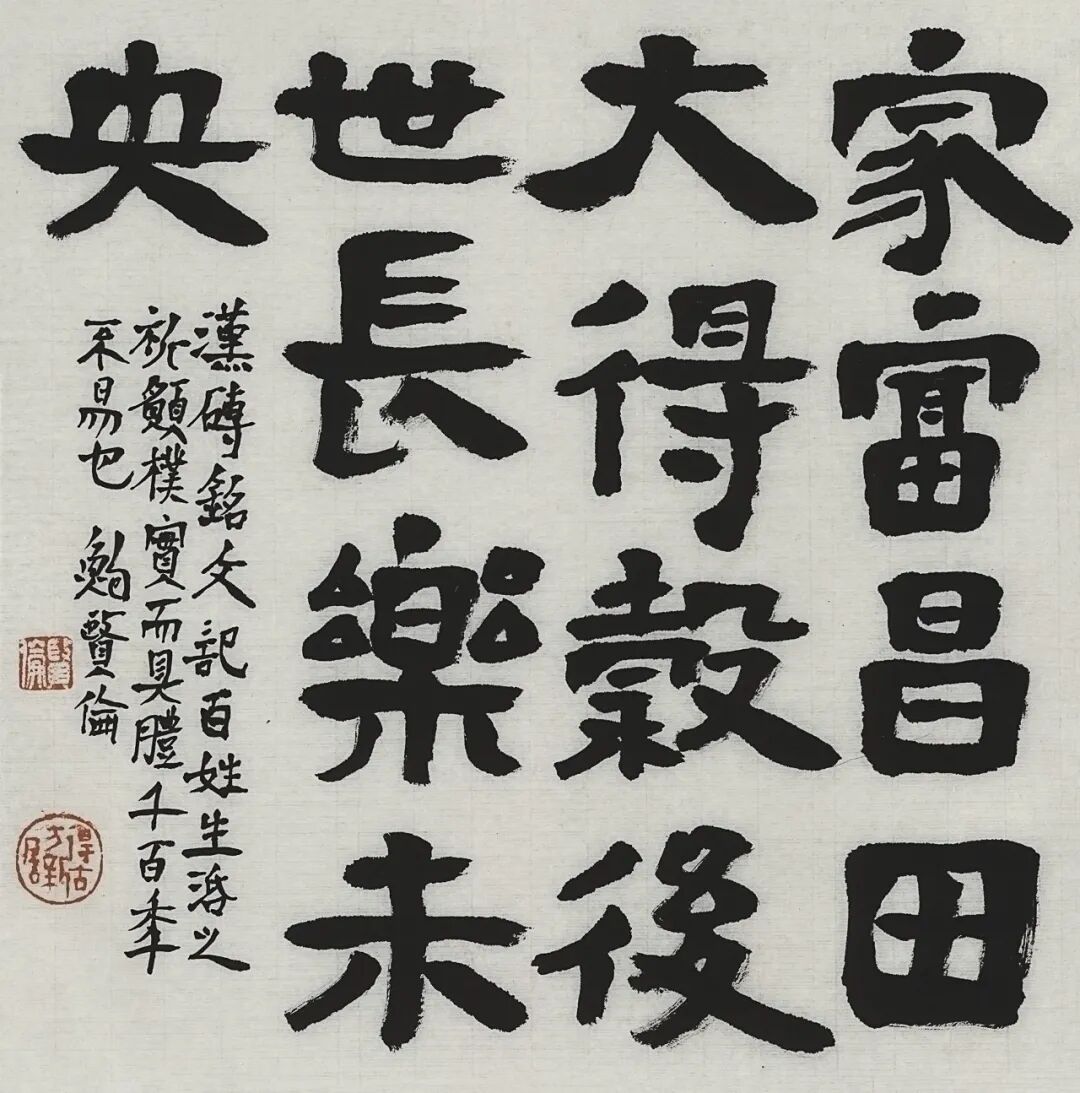 家富昌田
大得穀後
世長樂未
央
漢磚銘文記百姓生活之
祈願樸實而具體千百年
不易也 鮑賢倫
賢倫